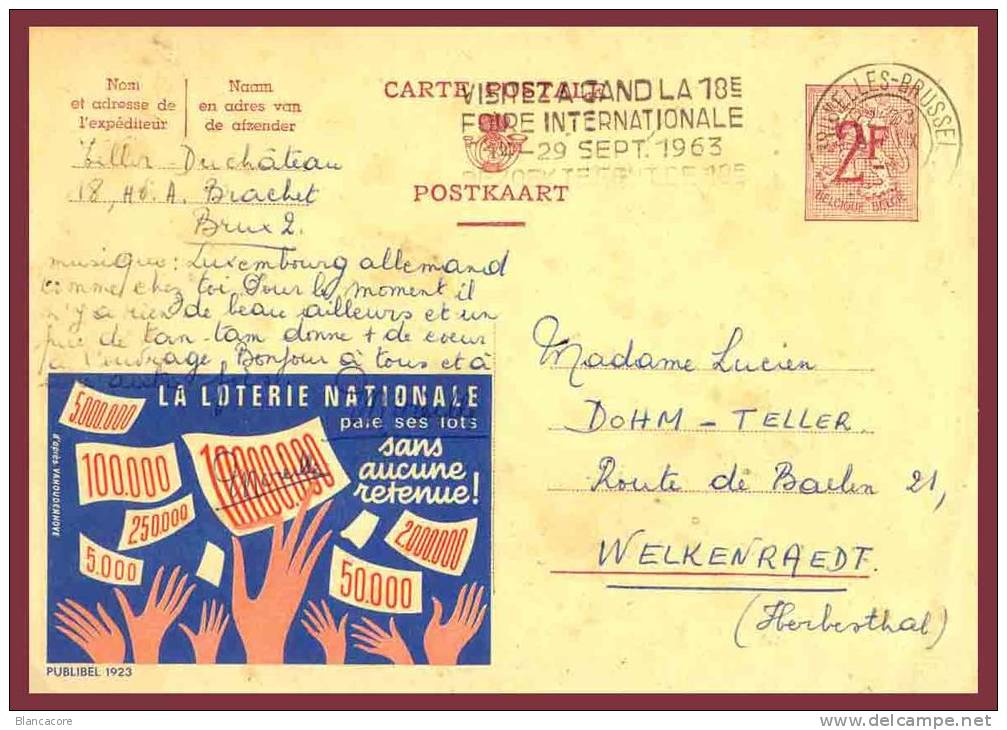 Nom
et adresse de
l'expéditeur
Naam
en adres van
de afzender
CARTE POSTALE
POSTKAART
VISITEZ A GAND LA 18E
FOIRE INTERNATIONALE
29 SEPT. 1963
BRUXELLES-BRUSSEL
2F
BELGIQUE-BELGIE
Duchâteau
18, A. Brachet
Brux 2.
musique: Luxembourg allemand
comme chez toi. Pour le moment il
n'y a rien de beau ailleurs et un
de tam-tam donne + de coeur
à l'ouvrage. Bonjour à tous et à
LA LOTERIE NATIONALE
paie ses lots
sans
aucune
retenue!
5.000.000
100.000
10.000.000
250.000
5.000
2.000.000
50.000
Mireille
d'après VANOUDENHOVE
PUBLIBEL 1923
Madame Lucien
DOHM - TELLER
Route de Baelen 21,
WELKENRAEDT.
(Herbesthal)
Blancacore
www.delcampe.net